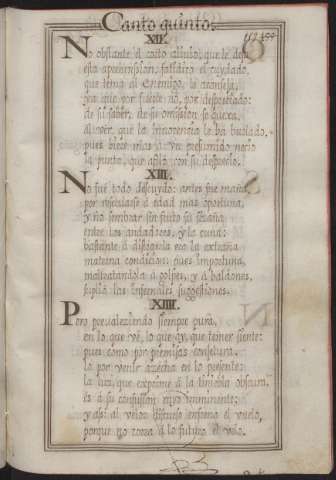 Canto quinto.
XII.
No obstante el coito
esta aprehension, fatidico el cuydado,
que tenia al Enemigo, le aconseja,
ya que por fuerte no, por despechado:
de su saber, de su omission se quexa,
al ver, que la Innocencia le ha burlado,
pues viene mas a un presumido necio
la punta, que afiló con su desprecio.
XIII.
No fue todo descuydo: antes fue maña,
por reservarse á edad mas oportuna,
y no sembrar sin fruto su
entre los andadores, y la cuna:
bastante á disponerla era la extraña
materna condicion, pues importuna,
maltratandola á golpes, y á baldones,
suplió las infernales suggestiones.
XIIII.
Pero prevaleziendo siempre pura,
en lo que vé, lo que ay, que temer siente:
pues como por premisas conjetura
lo por venir azecha en lo presente:
la luz, que exprime á la tiniebla obscura,
es á su confusion rayo imminente:
y assi al veloz discurso enfrena el vuelo,
porque no corra á lo futuro el velo.